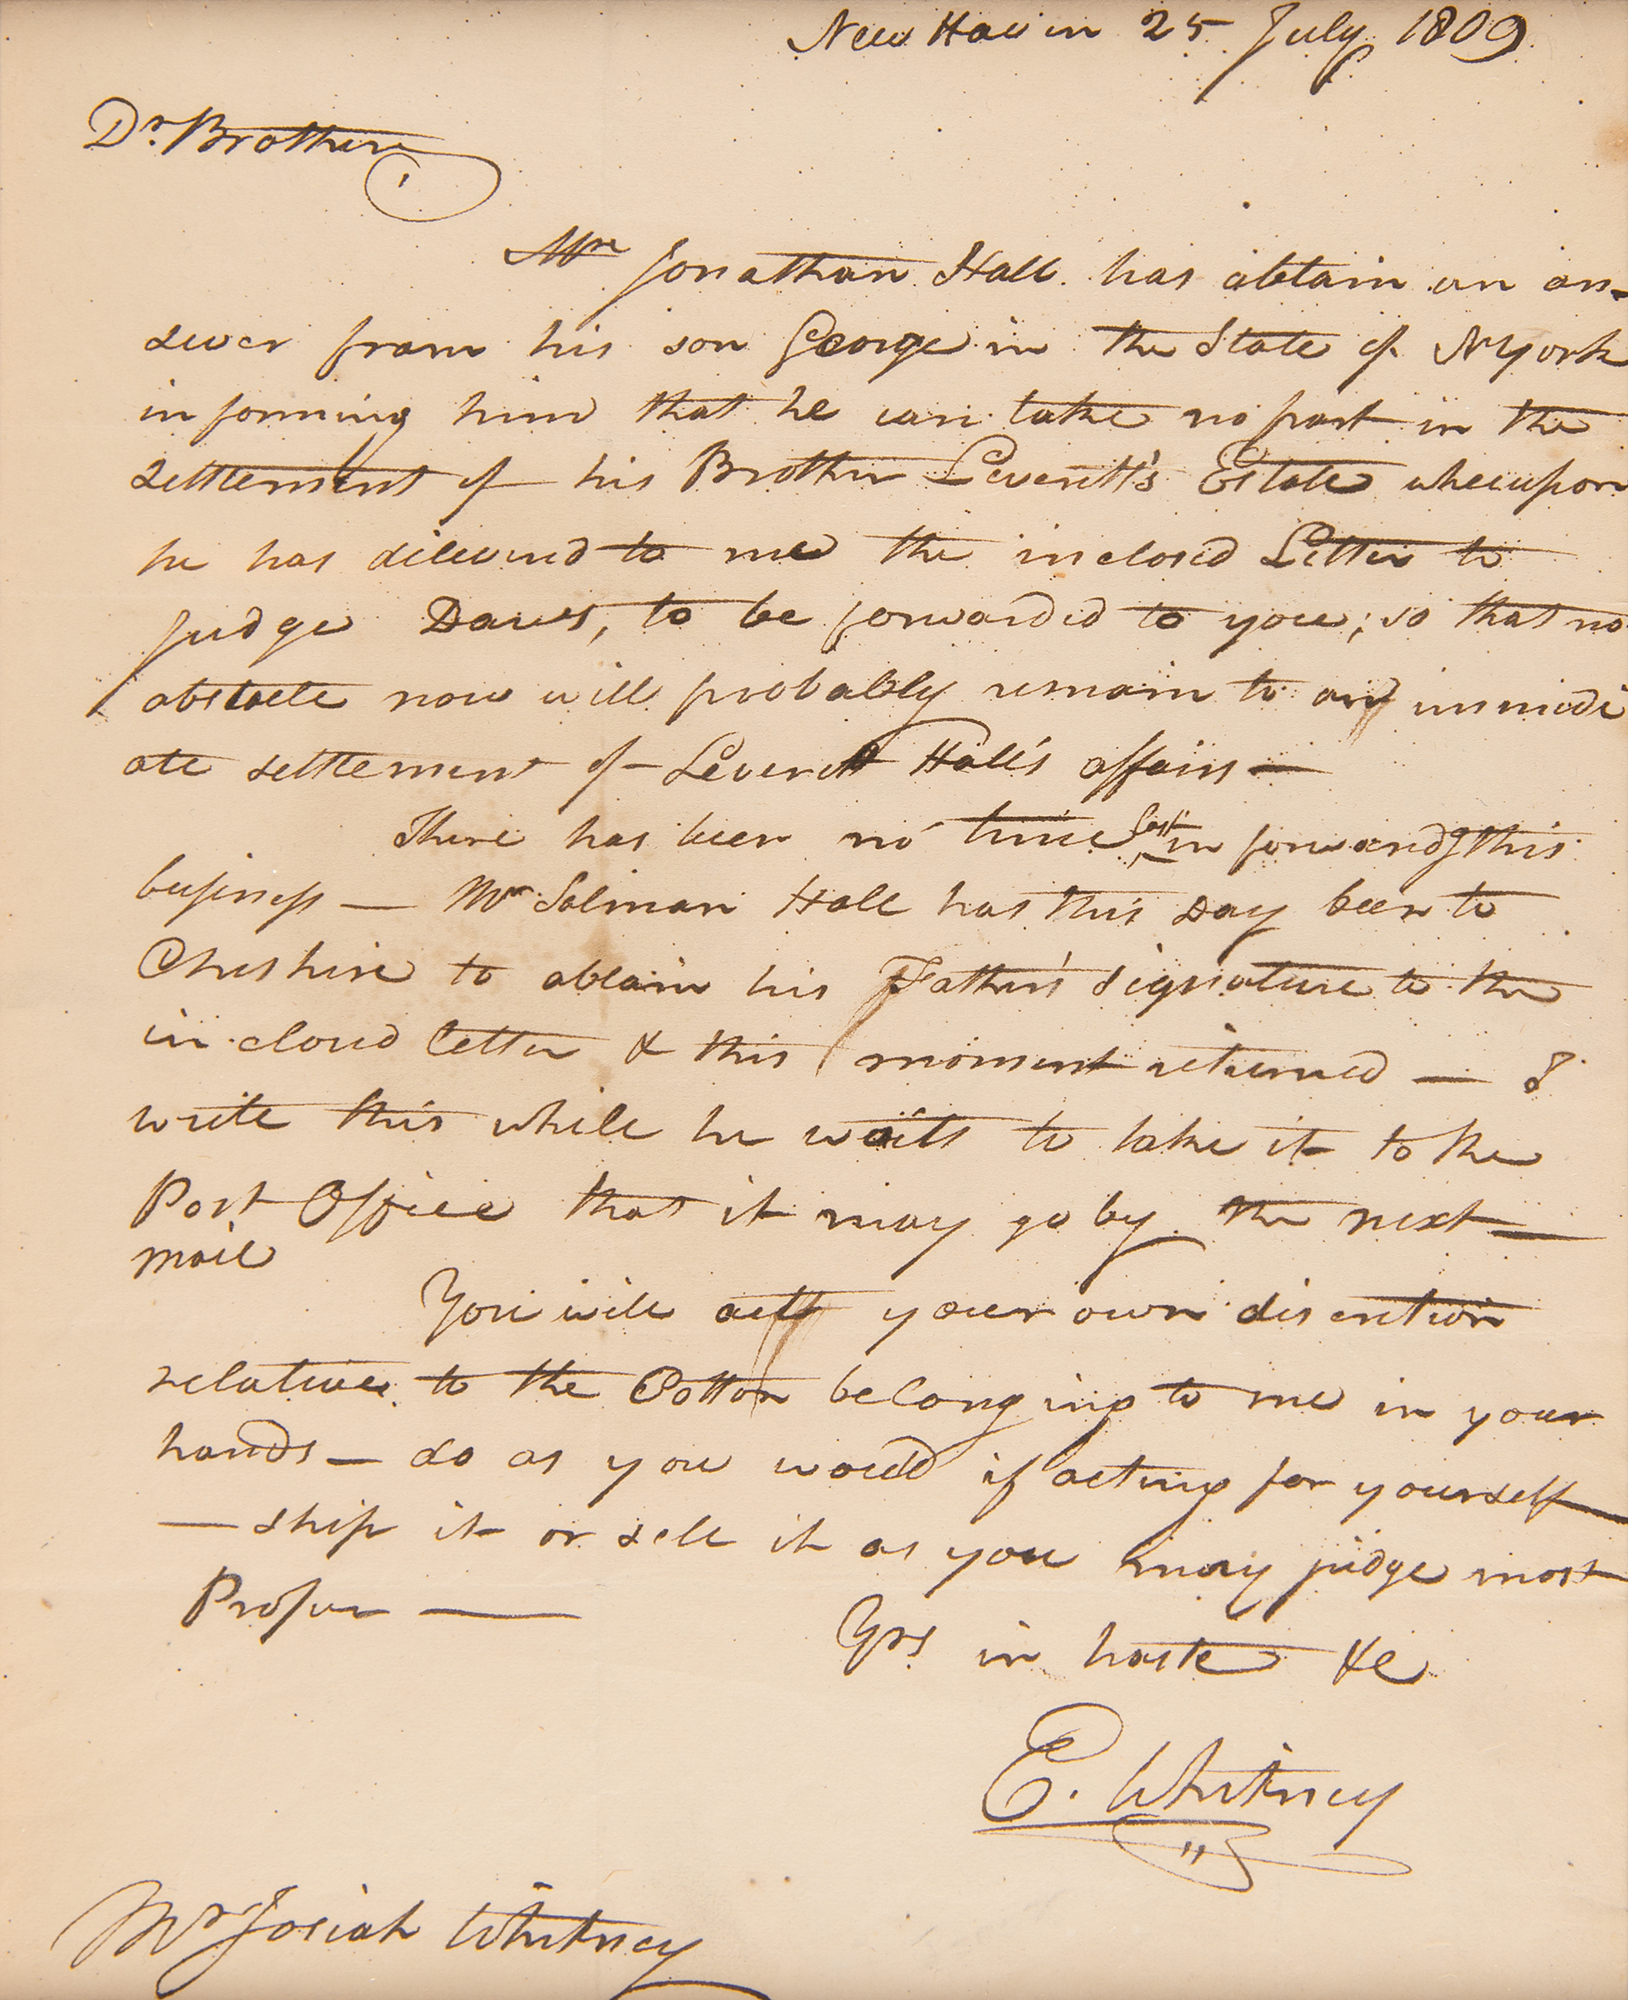 New Haven 25 July 1809
Dr. Brother
Mr Jonathan Hall has obtain an an-
swer from his son George in the State of NYork
informing him that he can take no part in the
settlement of his Brother Leverett's Estate whereupon
he has delivered to me the inclosed Letter to
Judge Daws, to be forwarded to you; so that no
obstacle now will probably remain to any immedi
ate settlement of Leverett Hall's affairs —
There has been no time lost in forwardg this
business — Mr. Salmon Hall has this Day been to
Cheshire to obtain his Father's signature to the
inclosed letter & this moment returned — I
write this while he waits to take it to the
Post Office that it may go by the next —
mail
You will act your own discretion
relative to the Cotton belonging to me in your
hands — do as you would if acting for yourself
— ship it or sell it as you may judge most
Proper —
Yrs in haste &c
E. Whitney
Mr Josiah Whitney